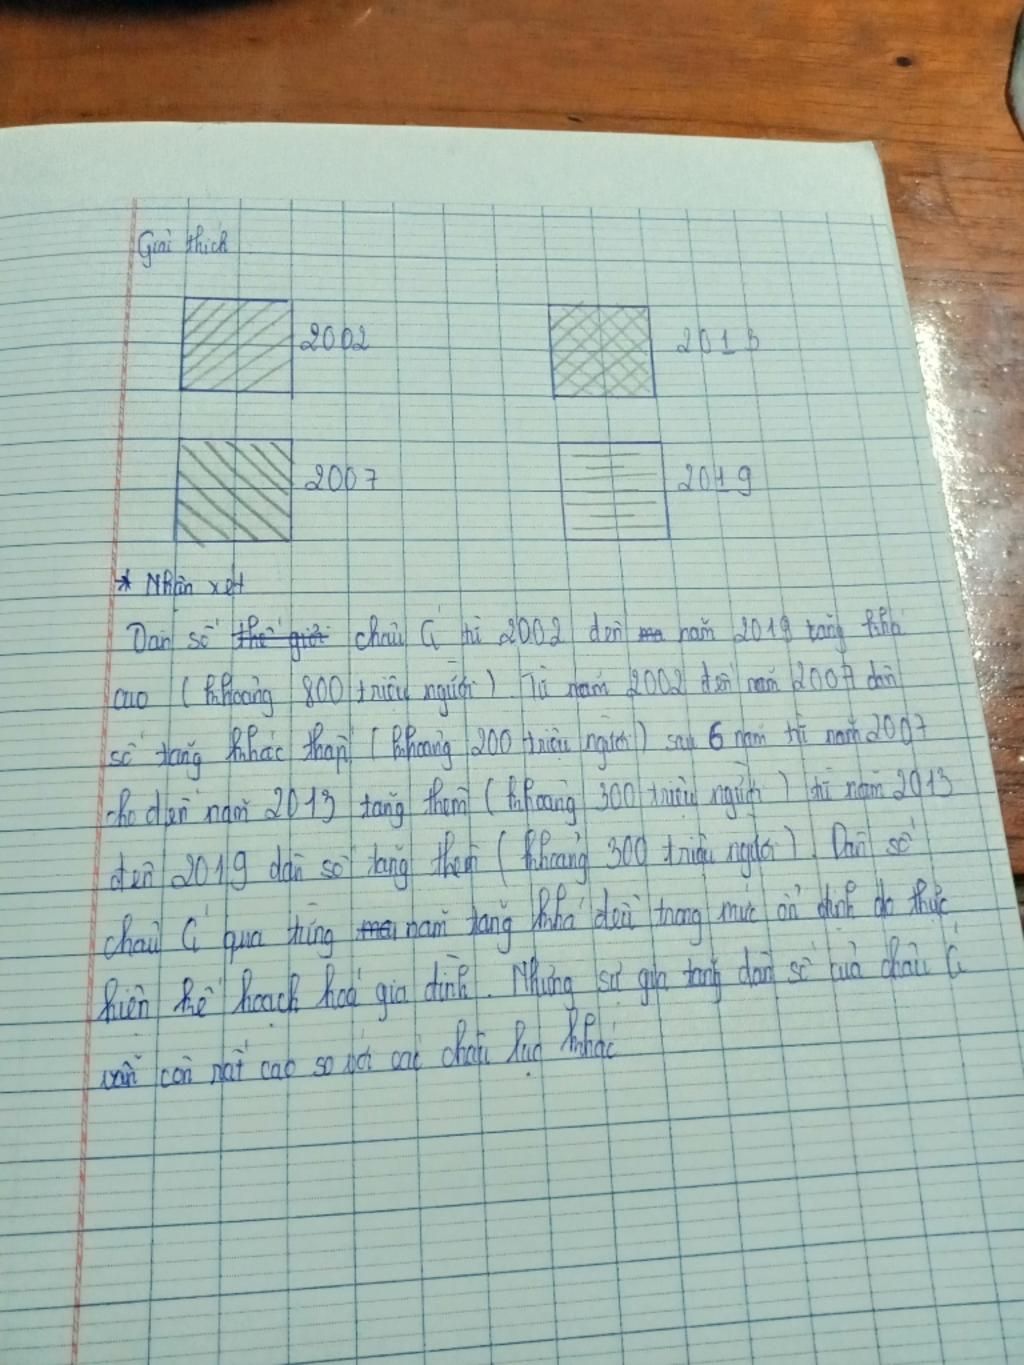 Giải thích
2002
2013
2007
2019
* Nhận xét
Dân số thế giới châu Á từ 2002 đến năm 2019 tăng khá
cao (khoảng 800 triệu người). Từ năm 2002 đến năm 2007 dân
số tăng khác thấp (khoảng 200 triệu người) sau 6 năm từ năm 2007
cho đến năm 2013 tăng thêm (khoảng 300 triệu người) từ năm 2013
đến 2019 dân số tăng thêm (khoảng 300 triệu người). Dân số
châu Á qua từng năm tăng khá đều trong mức ổn định do thực
hiện kế hoạch hoá gia đình. Nhưng sự gia tăng dân số của châu Á
vẫn còn rất cao so với các châu lục khác